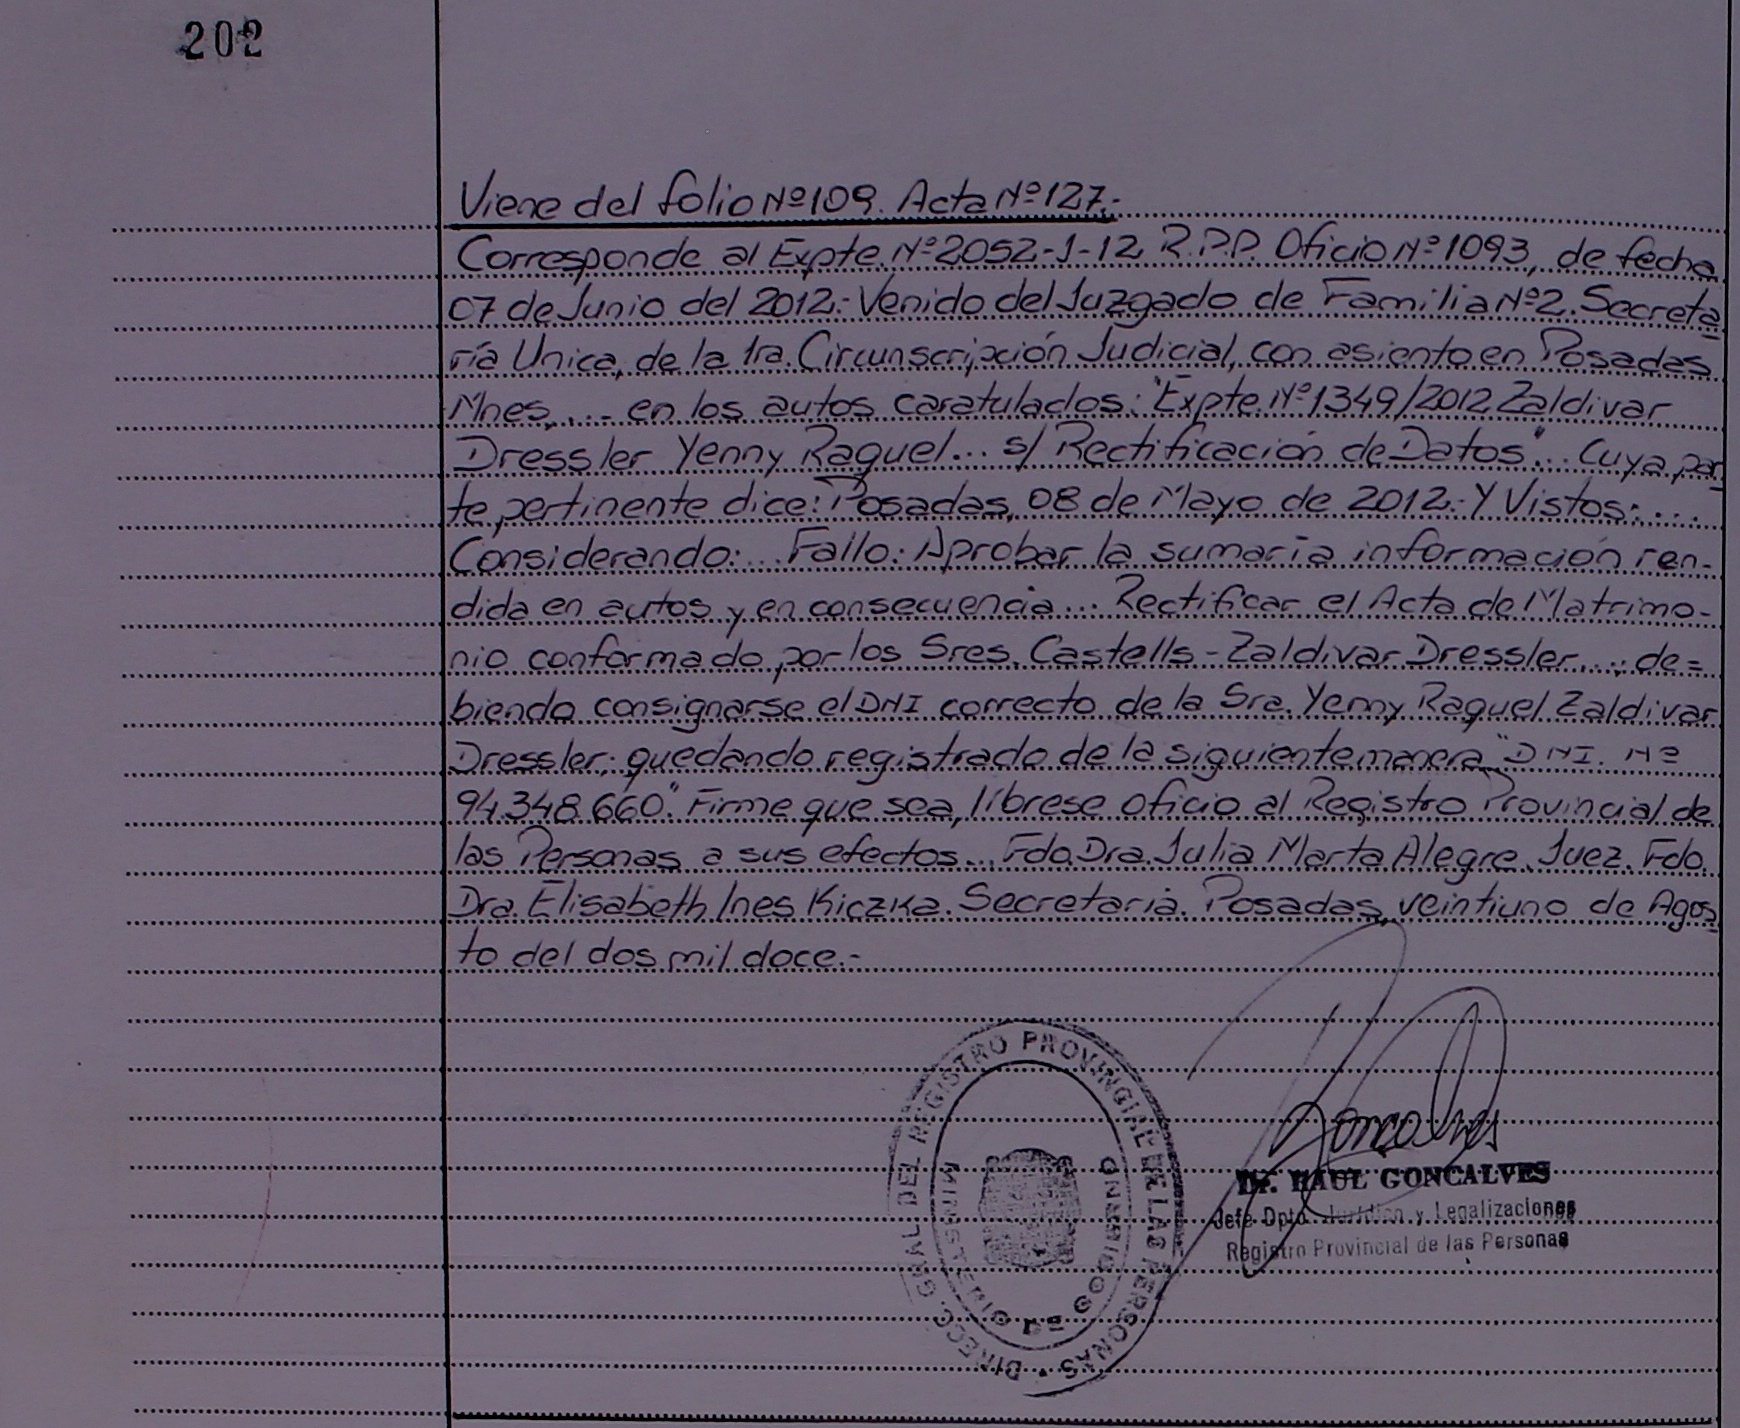 202
Viene del folio Nº 109. Acta Nº 127.-
Corresponde al Expte. Nº 2052-1-12 R.P.P. Oficio Nº 1093, de fecha
07 de Junio del 2012.- Venido del Juzgado de Familia Nº 2. Secreta-
ría Unica, de la 1ra. Circunscripción Judicial, con asiento en Posadas
Mnes, ... en los autos caratulados: "Expte. Nº 1349/2012 Zaldivar
Dressler Yenny Raquel... s/ Rectificación de Datos"... Cuya par-
te pertinente dice: Posadas, 08 de Mayo de 2012.- Y Vistos:....
Considerando:... Fallo: Aprobar la sumaria información ren-
dida en autos y en consecuencia... Rectificar el Acta de Matrimo-
nio conformado por los Sres. Castells - Zaldivar Dressler...., de=
biendo consignarse el DNI correcto de la Sra. Yenny Raquel Zaldivar
Dressler; quedando registrado de la siguiente manera "DNI. Nº
94.348.660". Firme que sea, líbrese oficio al Registro Provincial de
las Personas a sus efectos... Fdo. Dra. Julia Marta Alegre. Juez. Fdo.
Dra. Elisabeth Ines Kiczka. Secretaria. Posadas, veintiuno de Agos-
to del dos mil doce.-
DIRECC. GRAL. DEL REGISTRO PROVINCIAL DE LAS PERSONAS
MINISTERIO DE GOBIERNO
Goncalves
Dr. RAUL GONCALVES
Jefe Dpto. Jurídico y Legalizaciones
Registro Provincial de las Personas